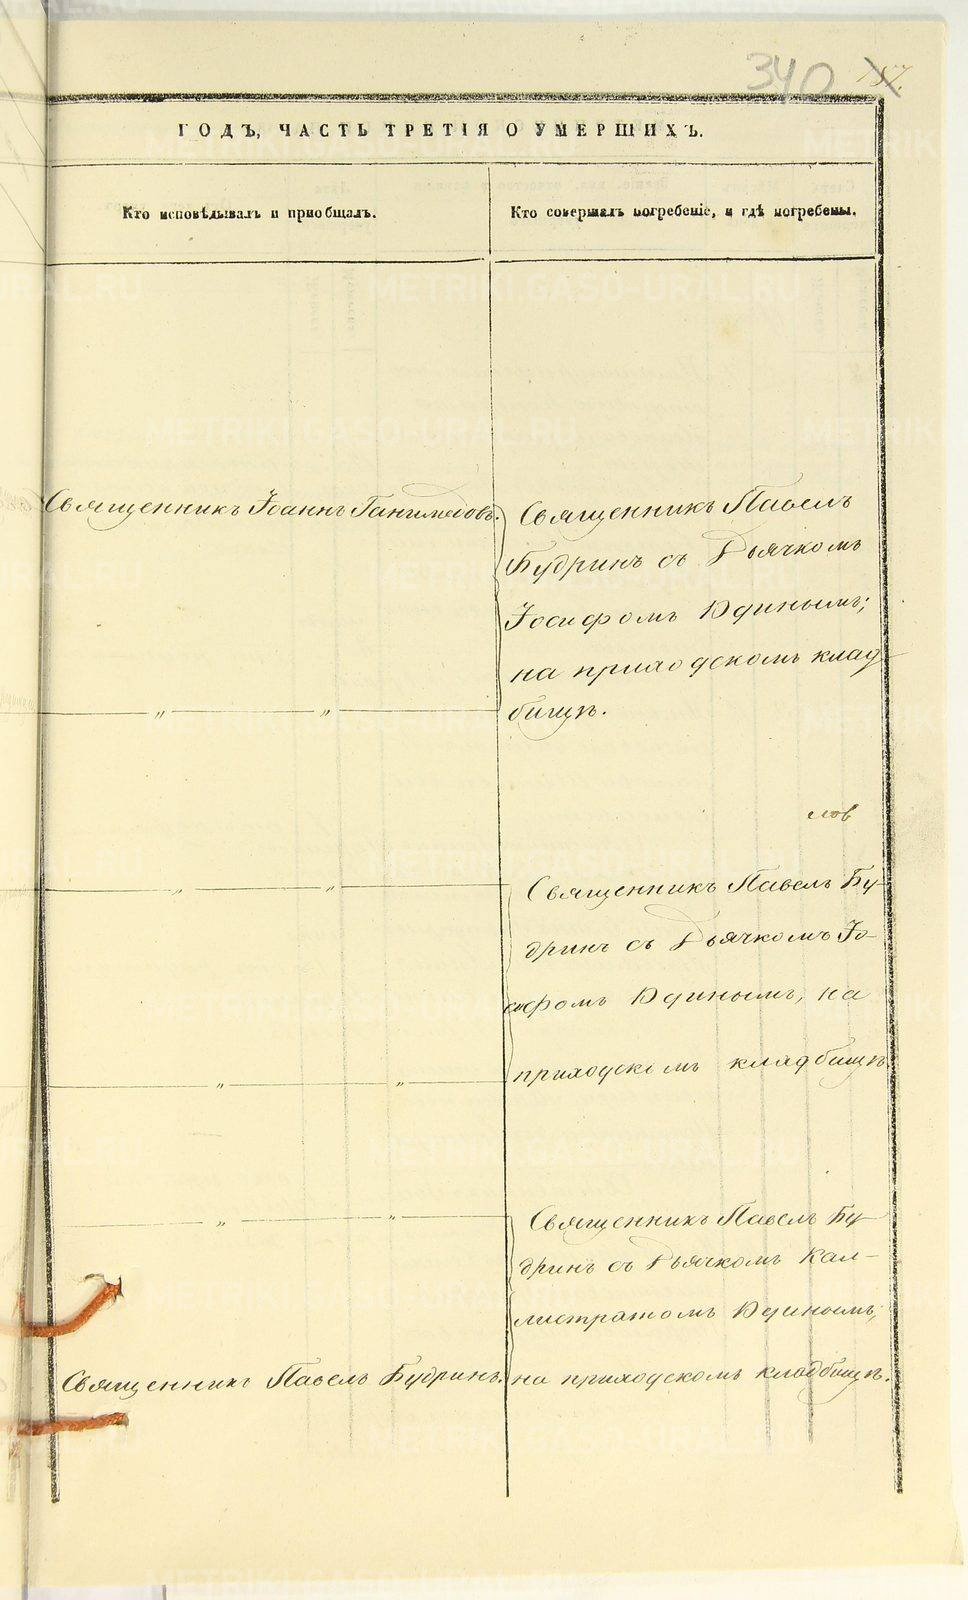 340 157.
ГОДЪ, ЧАСТЬ ТРЕТІЯ О УМЕРШИХЪ.
Кто исповѣдывалъ и приобщалъ.
Кто совершалъ погребеніе, и гдѣ погребены.
Священникъ Іоаннъ Ганимедовъ.
Священникъ Павелъ
Будринъ съ Дьячкомъ
Іосифомъ Юдинымъ;
на приходскомъ клад-
бищѣ.
" "
лов
" "
Священникъ Павелъ Бу-
дринъ съ Дьячкомъ Іо-
сифомъ Юдинымъ, на
приходскомъ кладбищѣ.
" "
" "
Священникъ Павелъ Бу-
дринъ съ Дьячкомъ Кал-
листратомъ Юдинымъ,
Священникъ Павелъ Будринъ.
на приходскомъ кладбищѣ.
METRIKI.GASO-URAL.RU